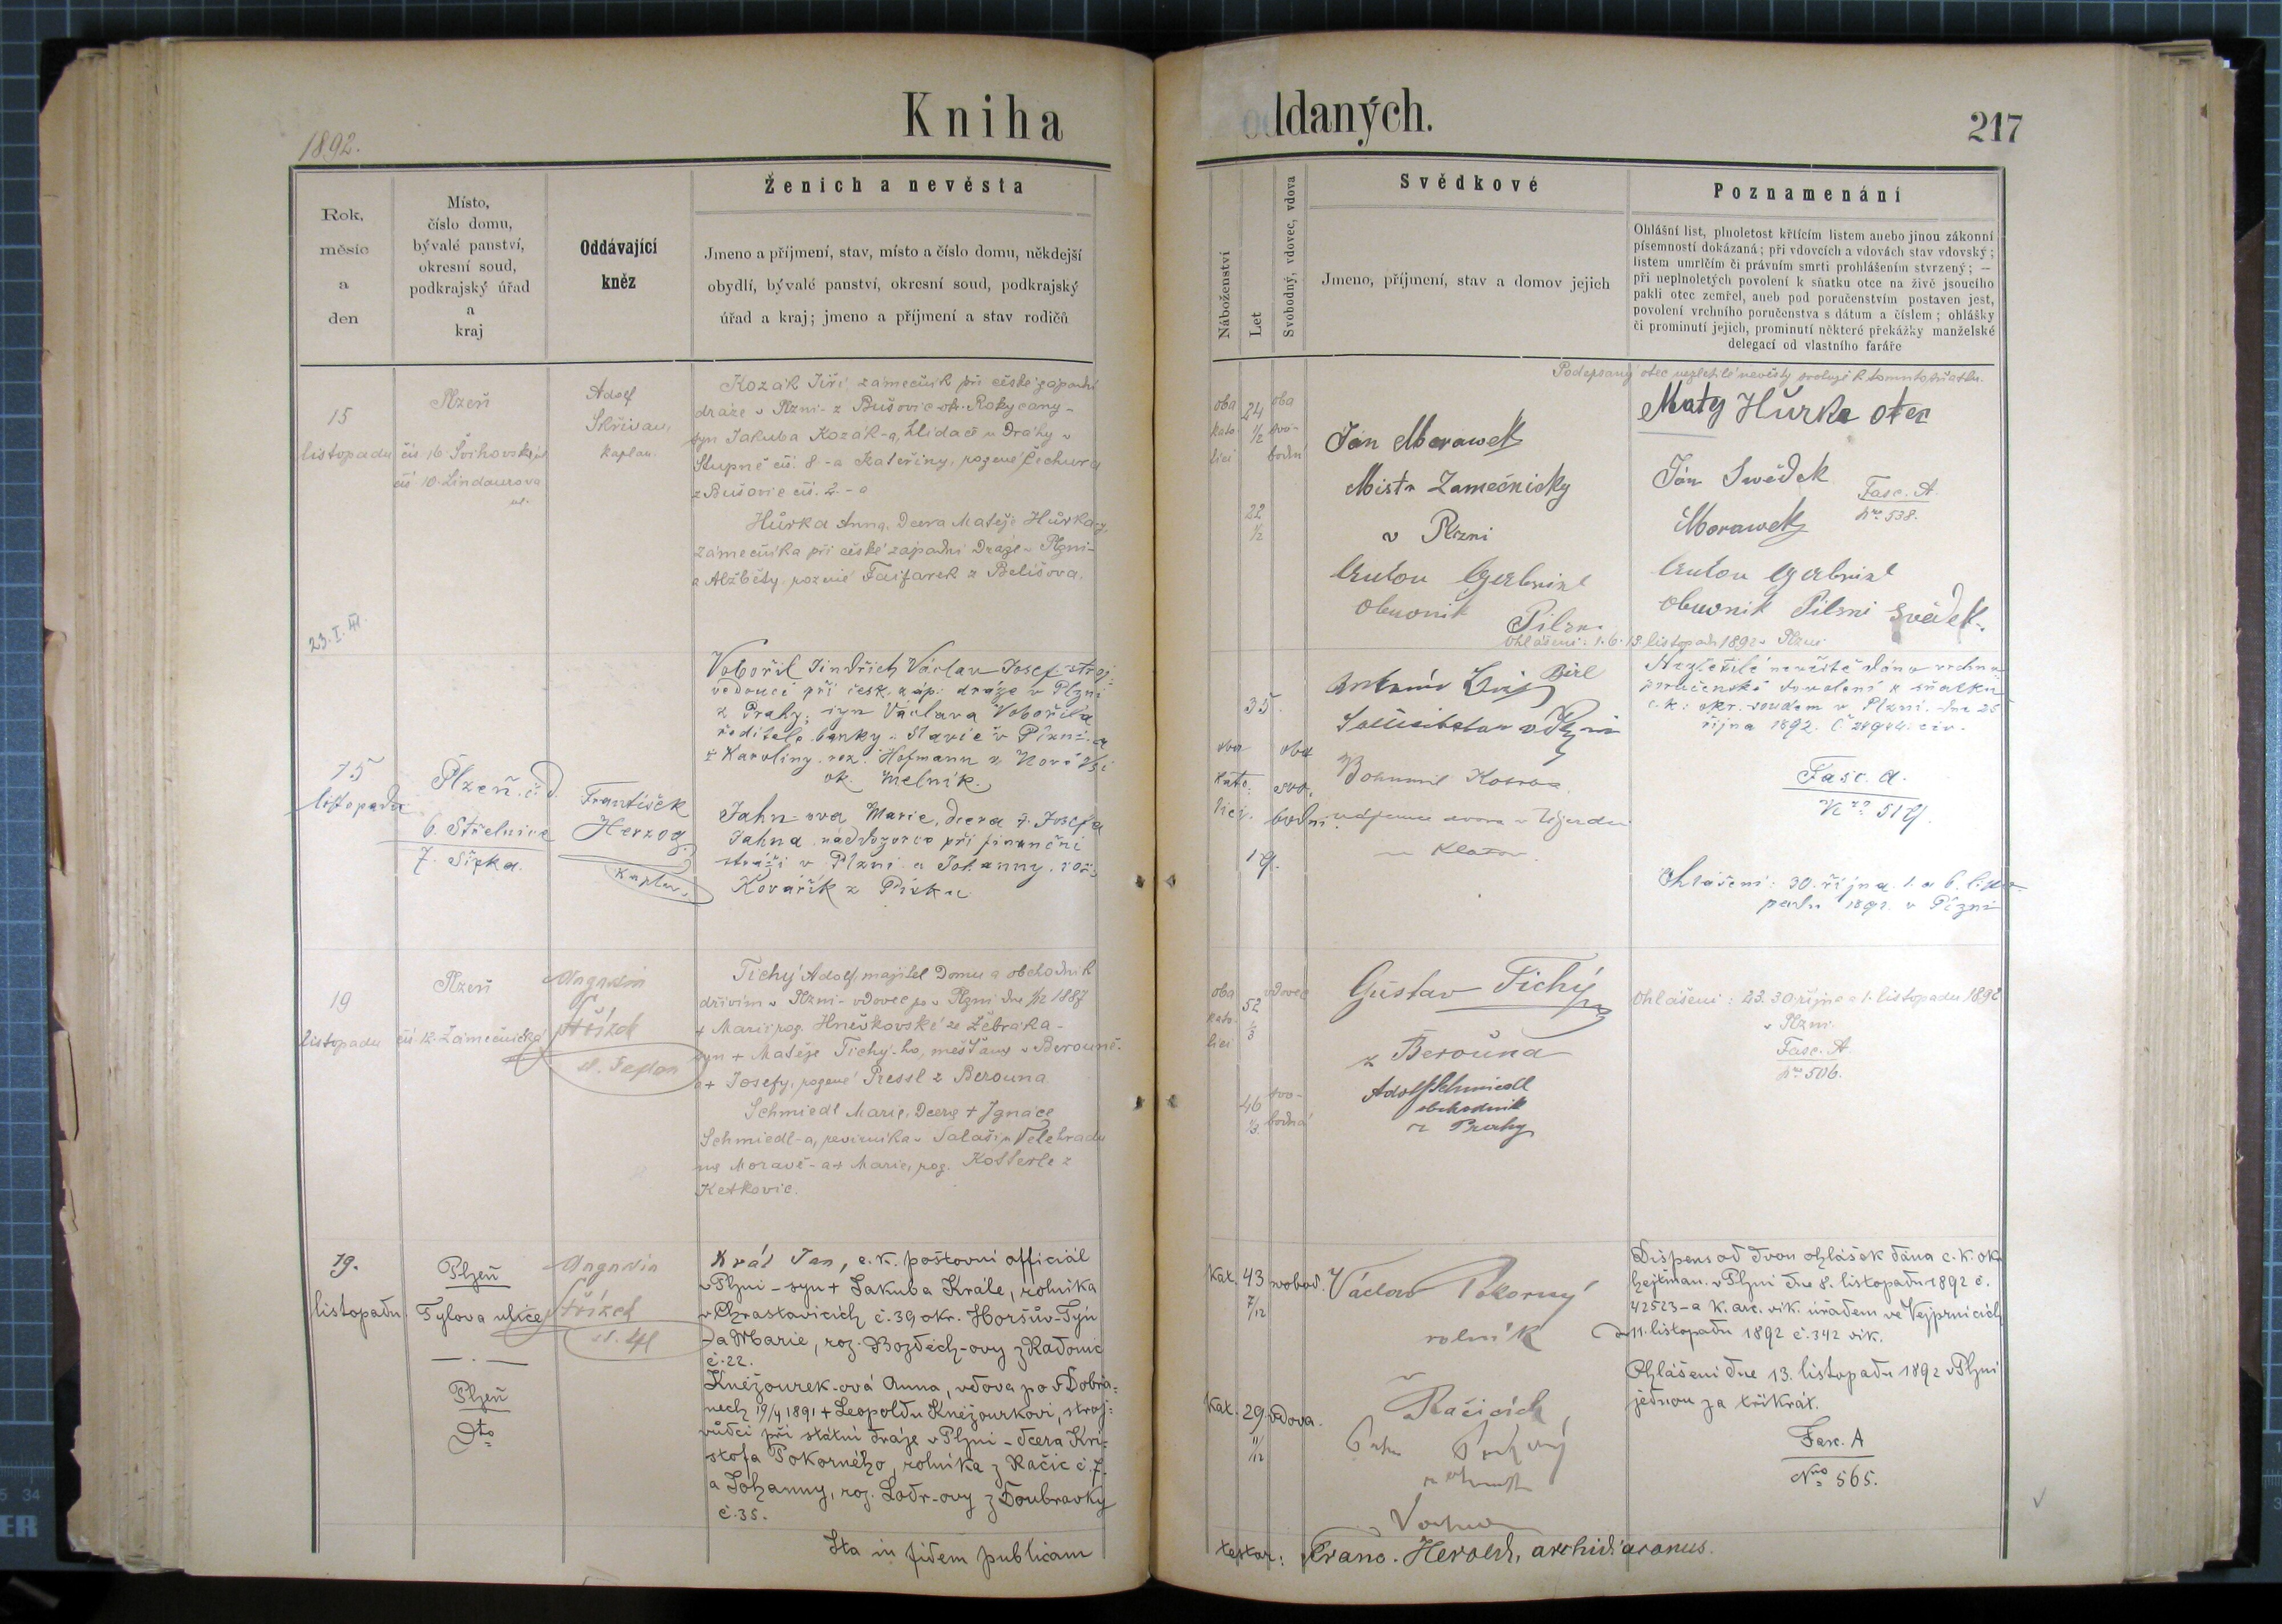 Kniha oddaných.
217
1892.
Rok,
měsíc
a
den
Místo,
číslo domu,
bývalé panství,
okresní soud,
podkrajský úřad
a
kraj
Oddávající
kněz
Ženich a nevěsta
Jmeno a příjmení, stav, místo a číslo domu, někdejší
obydlí, bývalé panství, okresní soud, podkrajský
úřad a kraj; jmeno a příjmení a stav rodičů
Náboženství
Let
Svobodný, vdovec, vdova
Svědkové
Jmeno, příjmení, stav a domov jejich
Poznamenání
Ohlášní list, plnoletost křticím listem anebo jinou zákonní
písemností dokázaná; při vdovcích a vdovách stav vdovský;
listem umrlčím či právním smrti prohlášením stvrzený; —
při neplnoletých povolení k sňatku otce na živě jsoucího
pakli otec zemřel, aneb pod poručenstvím postaven jest,
povolení vrchního poručenstva s dátum a číslem; ohlášky
či prominutí jejich, prominutí některé překážky manželské
delegací od vlastního faráře
15
listopadu
Plzeň
čís. 16. Švihovská ul.
čís. 10. Lindaurova
ul.
Adolf
Skřivan,
kaplan.
Kozák Jiří, zámečník při české západní
dráze v Plzni - z Bušovic okr. Rokycany -
syn Jakuba Kozák-a, hlídače u dráhy v
Stupně čís. 8. - a Kateřiny, rozené Čechura
z Bušovic čís. 2. -
Hůrka Anna, dcera Matěje Hůrka-y,
zámečníka při české západní dráze v Plzni -
a Alžběty, rozené Faifarek z Belišova.
23. I. 41.
oba
kato
líci
24
1/2
oba
svo-
bodní
22
1/2
Ján Morawek
Mistr Zamečnicky
v Plzni
Anton Gabriel
Obuvnik Pilzni
Podepsaný otec nezletilé nevěsty svoluje k tomuto sňatku.
Maty Hůrka otec
Ján Swědek
Morawek
Fasc. A.
Nro 538.
Anton Gabriel
Obuvnik Pilsni Svědek.
Ohlášeni: 1. 6. 13. listopadu 1892 v Plzni
15
listopadu
Plzeň. č. d.
6. Střelnice
7. Sirka.
František
Herzog.
kaplan.
Vobořil Jindřich Václav Josef stroj-
vedoucí při česk. záp. dráze v Plzni
z Prahy, syn Václava Vobořila
ředitele banky Slavie v Plzni a
Karoliny roz. Hofmann z Nové Vsi
ok. Mělník.
Jahn-ova Marie, dcera † Josefa
Jahna, nádvzorce při finanční
stráži v Plzni a Johanny, roz.
Kovářík z Písku
oba
kato.
lící.
35.
oba
svo.
bodni
19.
Bohumil
nájemce dvora v
Nezletilé nevěstě dáno vrchno
poručenské dovolení k sňatku
c. k. okr. soudem v Plzni dne 25
října 1892.
Fasc. A.
Nro 519.
Ohlášení: 30. října. 1. a 6. listo-
padu 1892. v Plzni
19
listopadu
Plzeň
čís. 12. Zámečnická
Augustin
Střízek
Tichý Adolf, majitel domu a obchodník
dřívím v Plzni - vdovec po v Plzni dne 1/12 1887
† Marii roz. Hněvkovské ze Žebráka -
syn † Matěje Tichý-ho, měšťana v Berouně -
a † Josefy, rozené Pressl z Berouna.
Schmiedl Marie, dcera † Ignáce
Schmiedl-a, revírníka v Salaši u Velehradu
na Moravě - a † Marie, roz. Kotterle z
Ketkovic.
oba
kato-
líci
52
1/3
vdovec
46
1/3.
svo-
bodná
Gustav Tichý
z Berouna
Adolf Schmiedl
obchodník
z Prahy
Ohlášeni: 23. 30 října a 1. listopadu 1892
v Plzni.
Fasc. A.
Nro 506.
19.
listopadu.
Plzeň
Tylova ulice
Plzeň
Dto
Augustin
Střízek
Král Jan, c. k. poštovní officiál
v Plzni - syn † Jakuba Krále, rolníka
v Chrastavicích č. 39 okr. Horšův-Týn
a Marie, roz. Bozděch-ovy z Radonic
č. 22.
Kněžourek-ová Anna, vdova po v Dobřa-
nech 19/4 1891 † Leopoldu Kněžourkovi, stroj-
vůdci při státní dráze v Plzni - dcera Kri-
stofa Pokorného, rolníka z Račic č. 7.
a Johanny, roz. Lodr-ovy z Doubravky
č. 35.
kat.
43
7/12
svobod.
kat.
29.
11/12
vdova.
Václav Pokorný
rolník
v
Račicích
Dispens od dvou ohlášek dána c. k. okr.
hejtman. v Plzni dne 8. listopadu 1892 č.
42523 - a k. arc. vik. úřadem ve Vejprnicích
d 11. listopadu 1892 č. 342 vik.
Ohlášeni dne 13. listopadu 1892 v Plzni
jednou za třikrát.
Fasc. A
Nro 565.
Ita in fidem publicam
testor: Franc. Herold, archidiaconus.